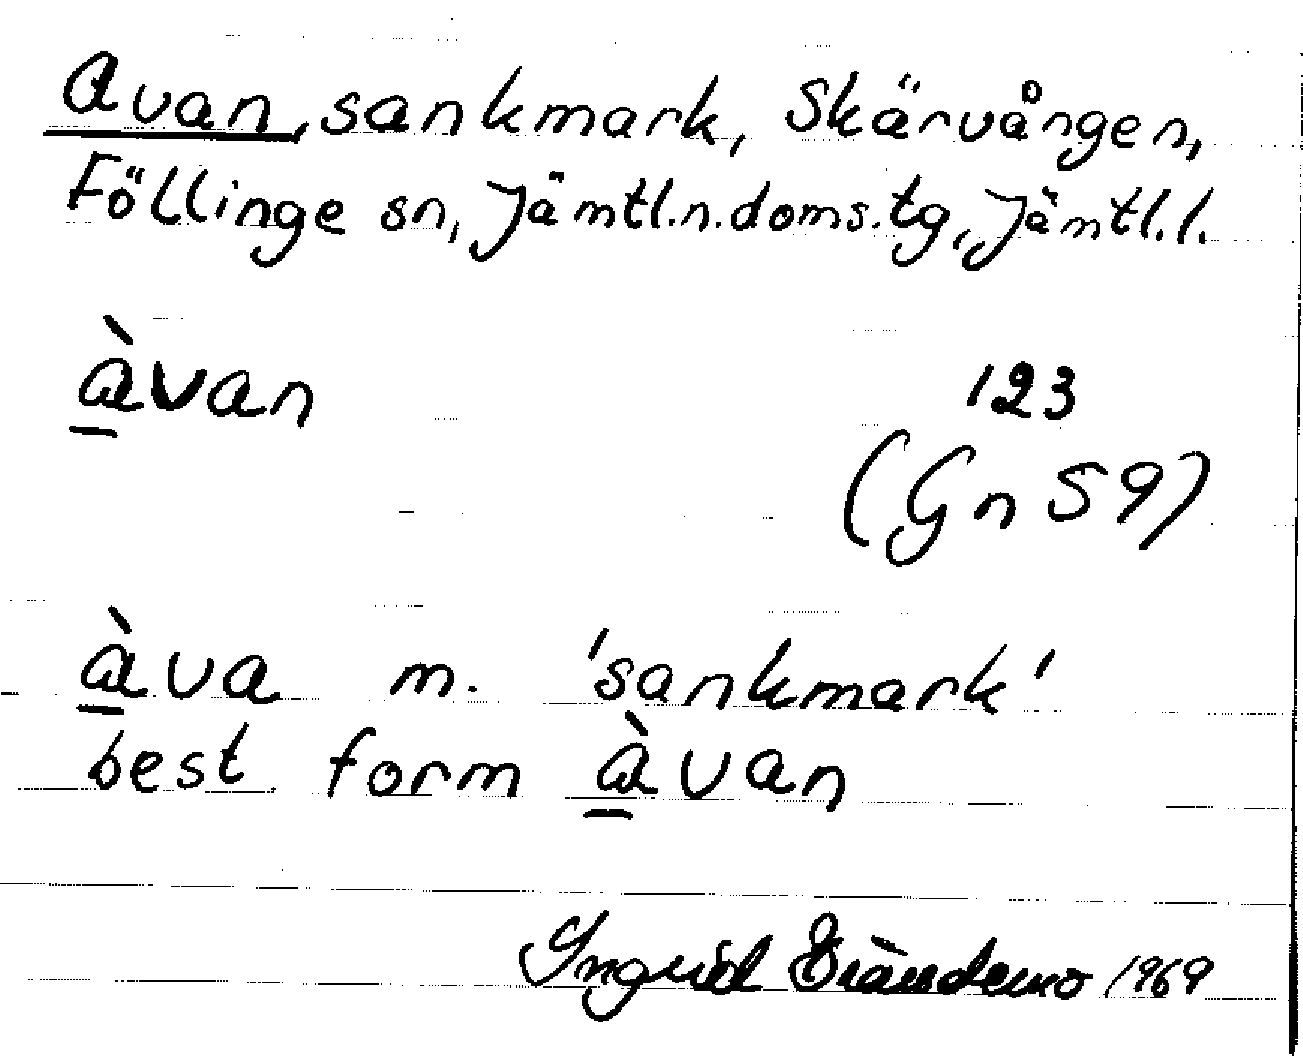 Avan, sankmark, Skärvången,
Föllinge sn, Jämtl.n.doms.tg, Jämtl.l.
à̱van
123
(Gn 59)
à̱va m. 'sankmark'
best form à̱van
Ingrid 1969